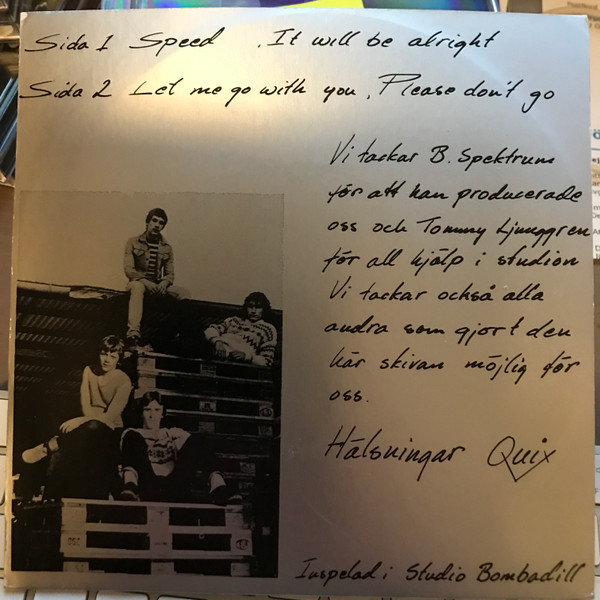 Sida 1 Speed , It will be alright
Sida 2 Let me go with you, Please don't go
Vi tackar B. Spektrum
för att han producerade
oss och Tommy Ljunggren
för all hjälp i studion
Vi tackar också alla
andra som gjort den
här skivan möjlig för
oss.
Hälsningar Quix
Inspelad i Studio Bombadill